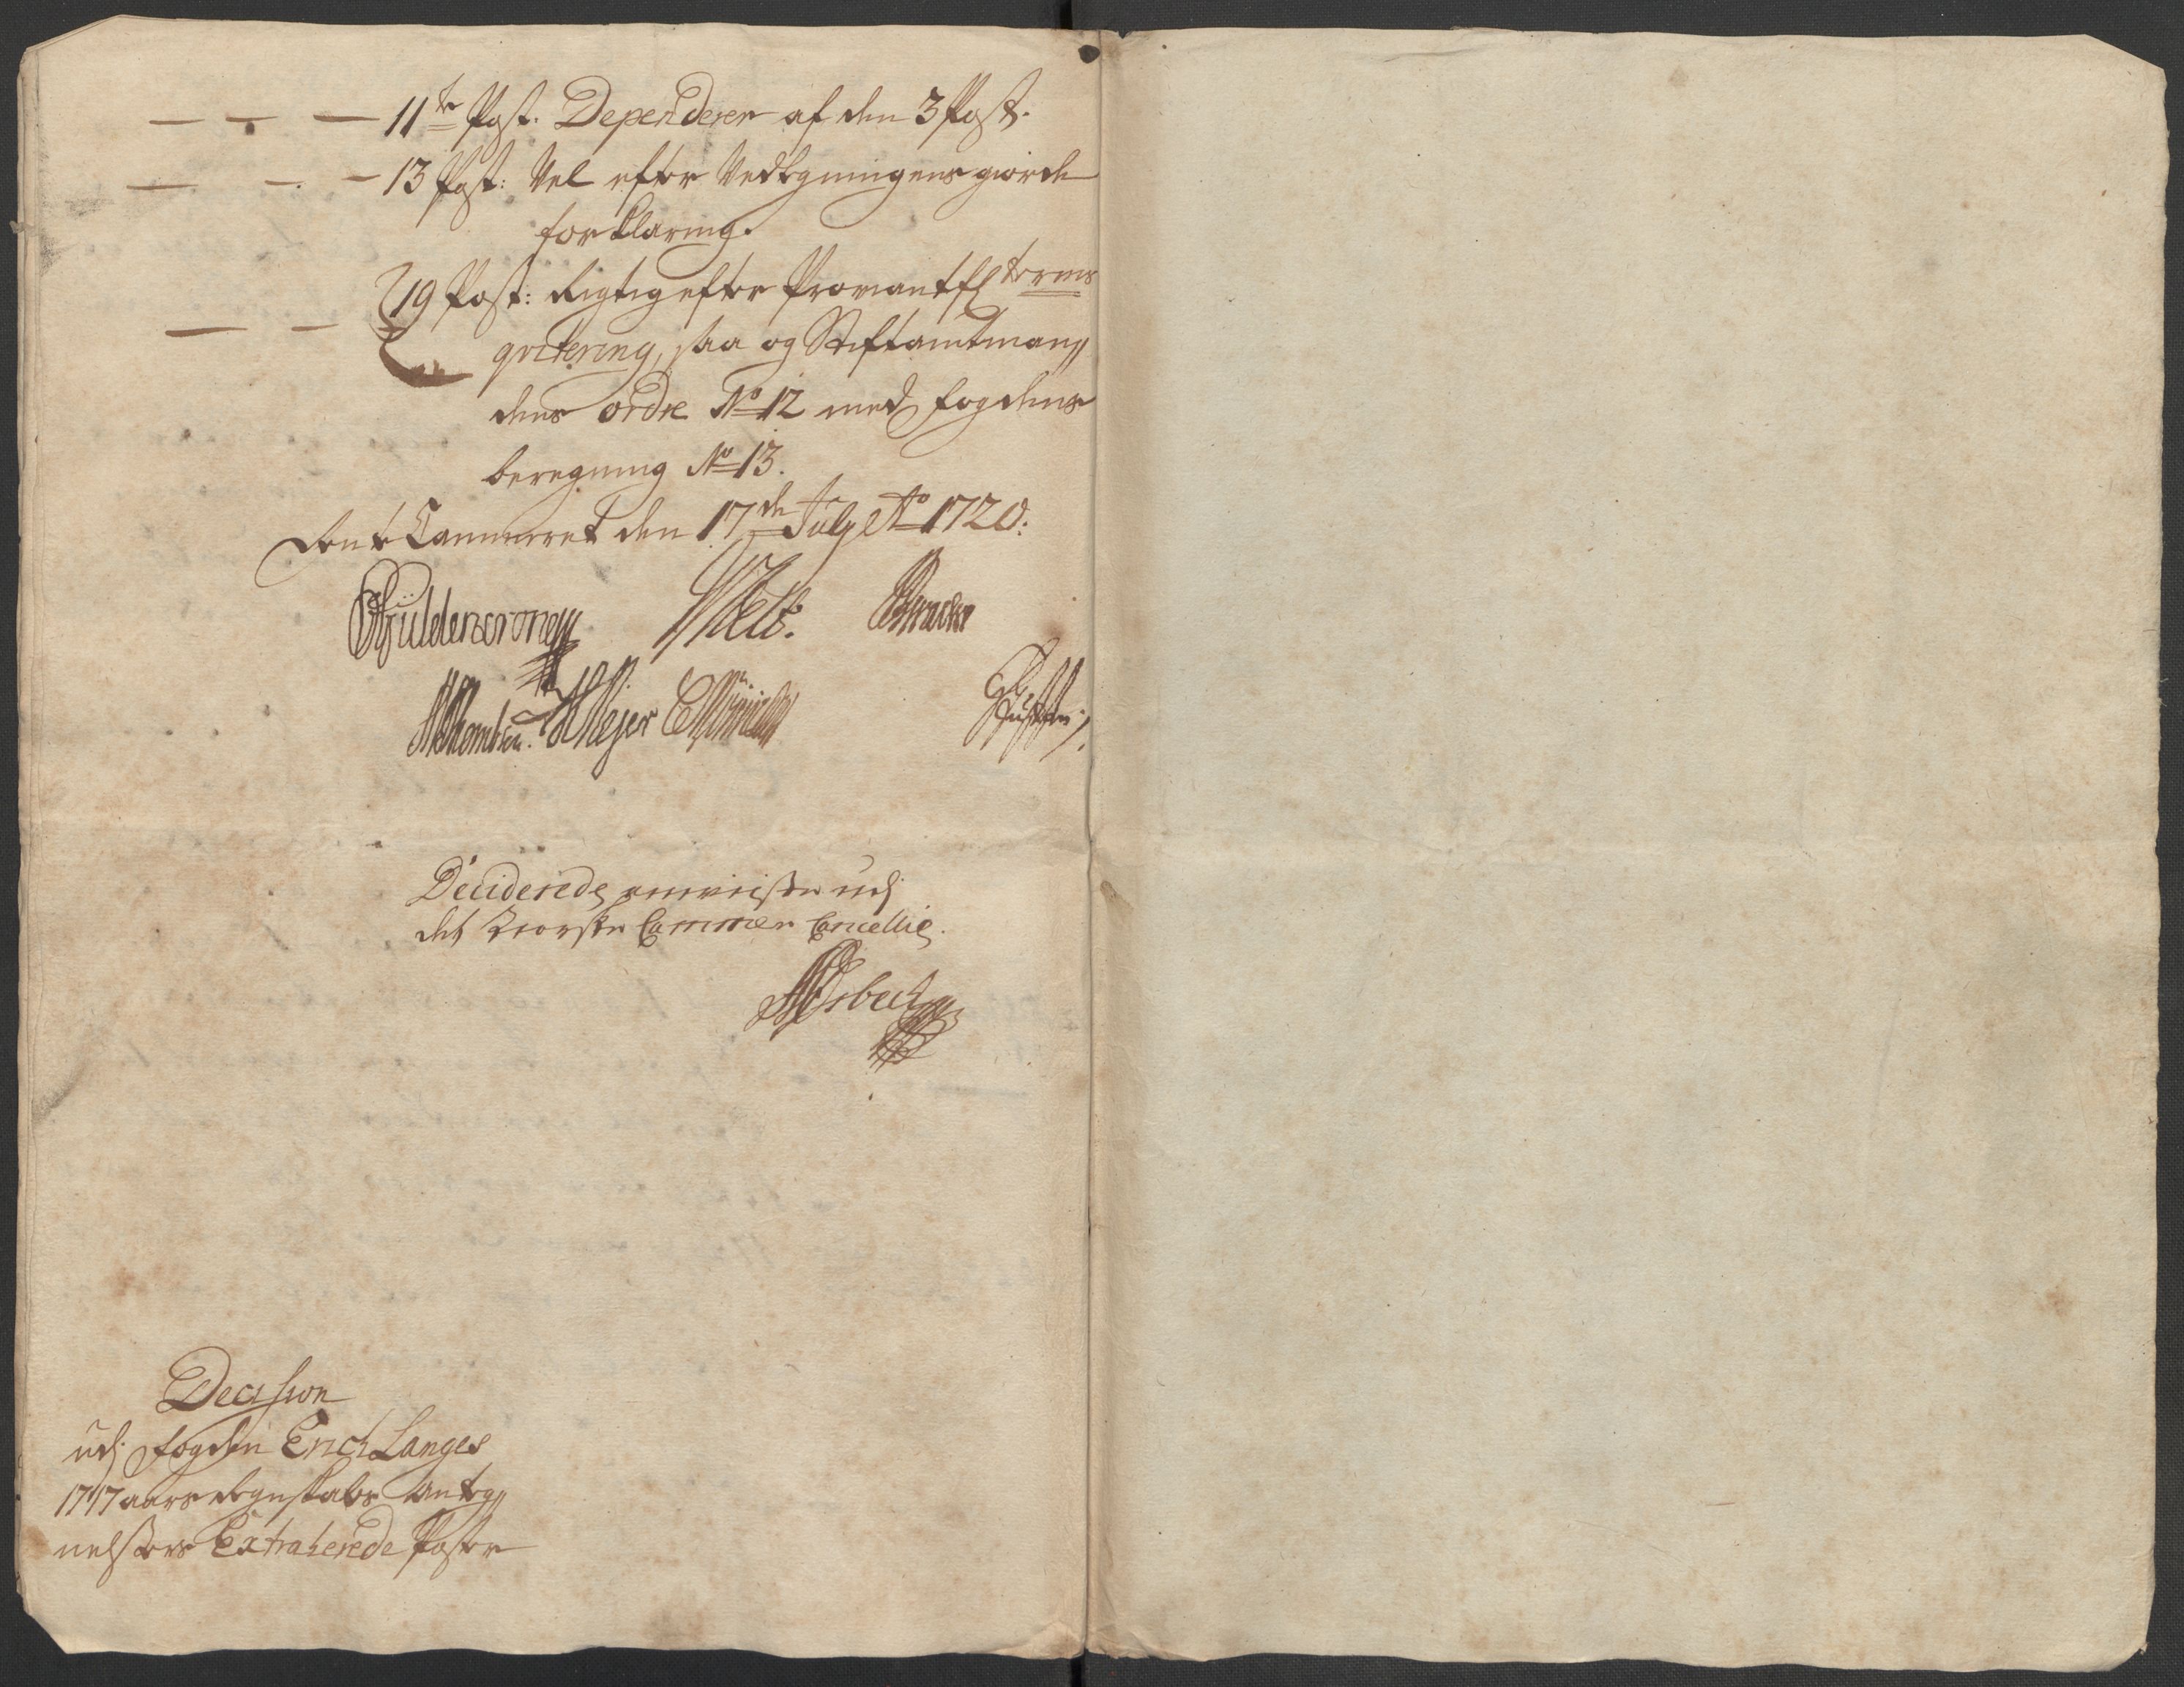 11te Post. Dependerer af den 3 Post.
13 Post: Vel efter Vedtegningens giorde
forklaring.
19 Post: Rigtig efter Proviantf
qvitering, saa og Stiftamtman„
dens ordre No 12 med fogdens
beregning No 13.
Rente Cammeret den 17de July Ao 1720.
Güldencrone
Meyer
Deciderede udj
det Norske Cammer Cancellie.
Decision
udj fogden Erich Langes
1717 aars Regnskabs Anteg„
nelsers Extraherede Poster